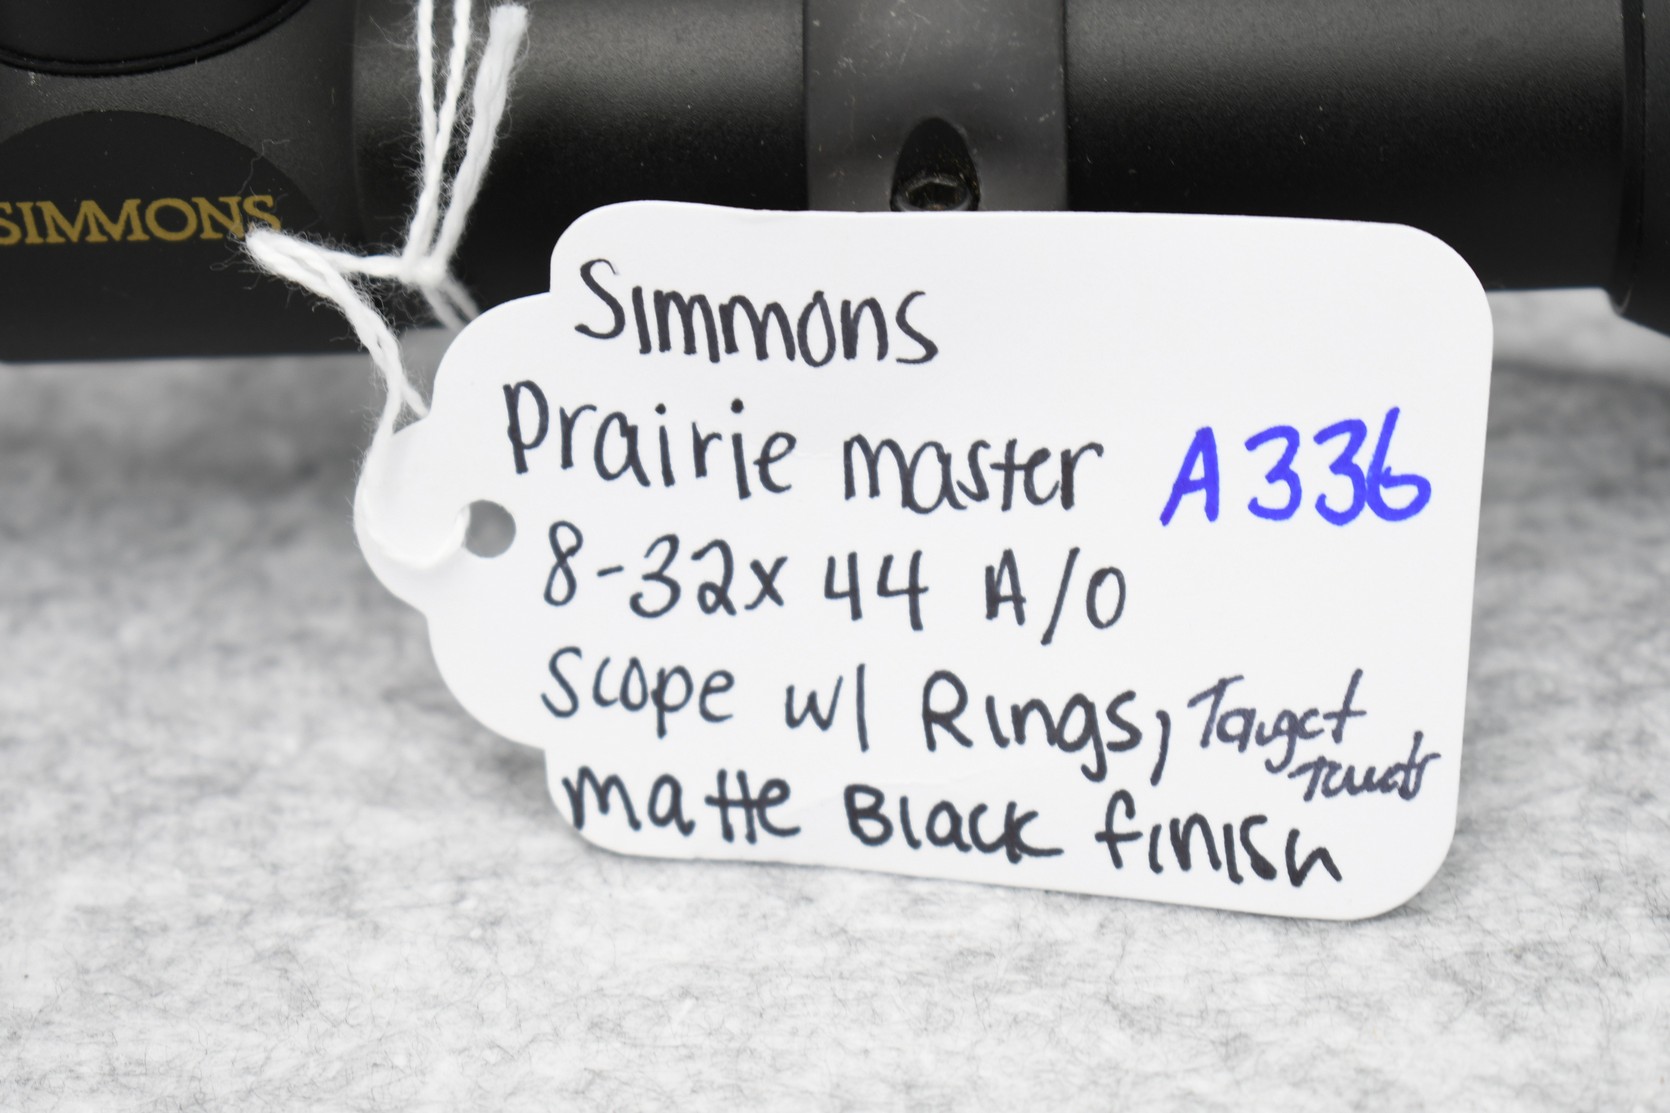 SIMMONS
Simmons
Prairie master A336
8-32x 44 A/O
Scope w/ Rings, Target
matte Black finish